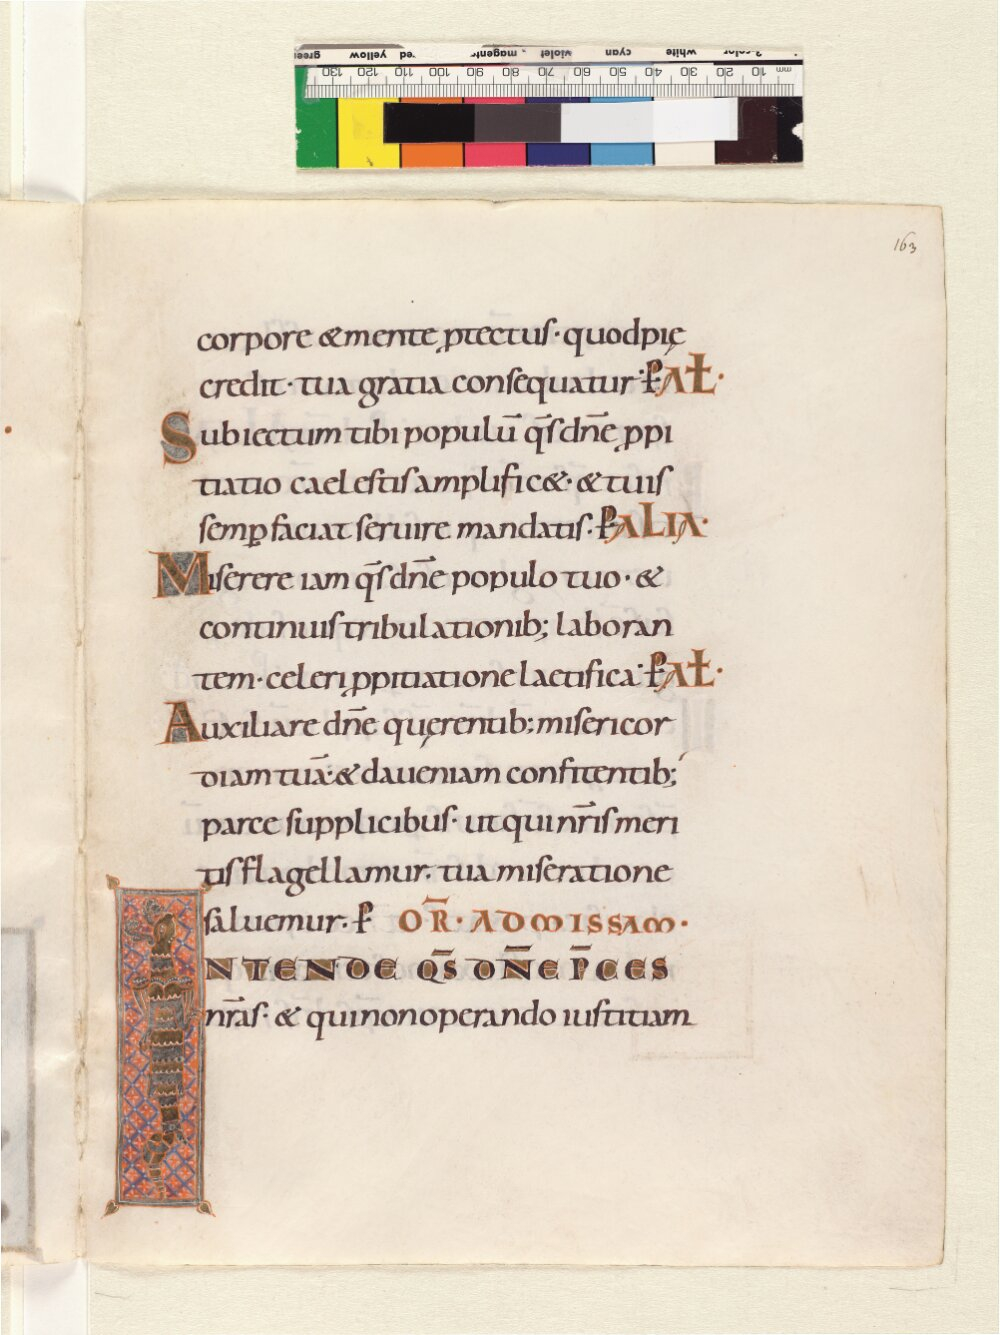 green yellow red magenta violet cyan white 3-color
130 120 110 100 90 80 70 60 50 40 30 20 10 mm
163
corpore & mente ꝓtectus· quod pię
credit· tua gratia consequatur· P̵ AŁ·
Subiectum tibi populū q̄s dn̄e ꝓpi
tiatio caelestis amplific&· & tuis
semꝑ faciat seruire mandatis· P̵ ALIA·
Miserere iam q̄s dn̄e populo tuo· &
continuis tribulationib; laboran
tem· celeri ꝓpitiatione laetifica· P̵ AŁ·
Auxiliare dn̄e quęrentib; misericor
diam tuā· & da ueniam confitentib;
parce supplicibus· ut qui nr̄is meri
tis flagellamur· tua miseratione
saluemur· P̵ OR̄· AD MISSAM·
INTENDE Q̄S DN̄E P̄CES
nr̄as· & qui non operando iustitiam